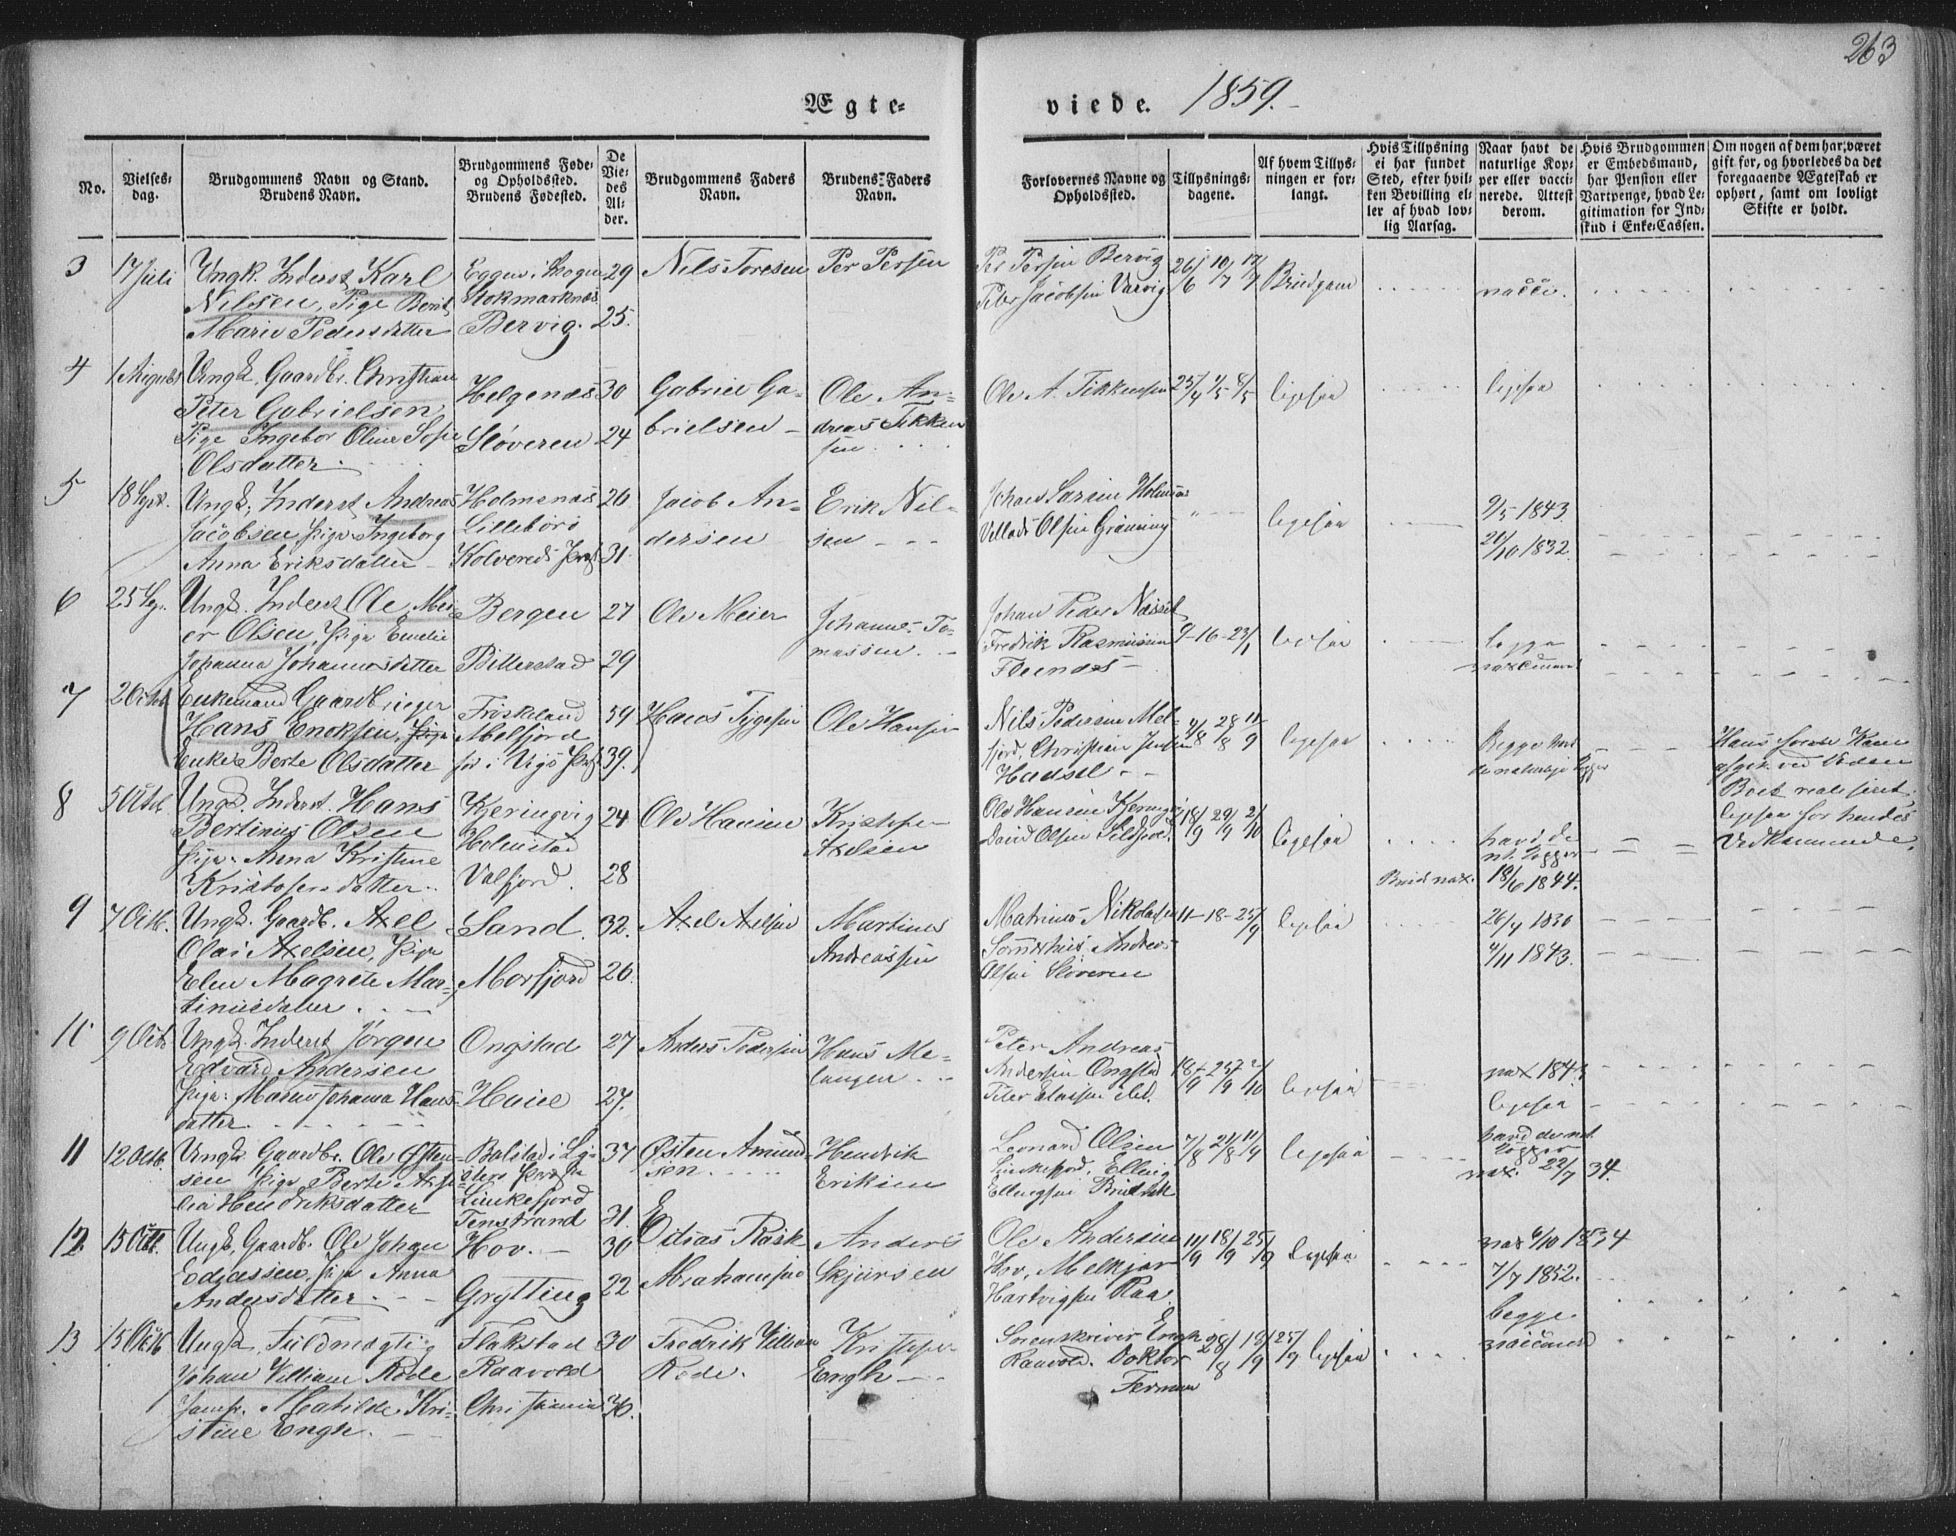 263
Ægte-
viede. 1859.
No.
Vielses-
dag.
Brudgommens Navn og Stand.
Brudens Navn.
Brudgommens Føde-
og Opholdssted.
Brudens Fødested.
De
Vie-
des
Al-
der.
Brudgommens Faders
Navn.
Brudens Faders
Navn.
Forlovernes Navne og
Opholdssted.
Tillysnings-
dagene.
Af hvem Tillys-
ningen er for-
langt.
Hvis Tillysning
ei har fundet
Sted, efter hvil-
ken Bevilling el-
ler af hvad lov-
lig Aarsag.
Naar havt de
naturlige Kop-
per eller vacci-
nerede. Attest
derom.
Hvis Brudgommen
er Embedsmand,
har Pension eller
Vartpenge, hvad Le-
gitimation for Ind-
skud i Enke-Cassen.
Om nogen af dem har været
gift før, og hvorledes da det
foregaaende Ægteskab er
ophørt, samt om lovligt
Skifte er holdt.
3 17 Juli Ungk. Inderst Karl
Nilsen, Pige Berit
Marie Pedersdatter
Stokmarknæs
Bervig.
29
25.
Nils Toresen
Per Persen
Per Persen Bervig
Peter Jacobsen Varvig
26/6 10/7 17/7
Brudgom
4 1 August Ungk. Gaardbr. Christian
Peter Gabrielsen,
Pige Ingebor Oline Sofie
Olsdatter.
Helgenæs
Sløveren
30
24
Gabriel Ga-
brielsen
Ole An-
dreas Tikken
sen
Ole A. Tikkensen
25/4 1/5 8/5
ligesaa
ligesaa
5 18 Sept. Ungk. Inderst Andreas
Jacobsen Pige Ingeborg
Anna Eriksdatter
Holmenæs
Lillebørø
Kolvereds Præst
26
31
Jacob An-
dersen
Erik Nil-
sen
Johan Larsen Holmnæs
Villads Olsen Grønning
ligesaa
9/5 1843.
21/10 1832.
6 25 Sep. Ungk. Inderst Ole Mei-
er Olsen, Pige Emelie
Johanna Johannesdatter
Bergen
Bitterstad
27
29
Ole Meier
Johannes To-
massen
Johan Peder Næsset
Fredrik Rasmussen
9-16-23/1
ligesaa
begge
vaccineret
7 2 Octob Enkemand Gaardbruger
Hans Enoksen, Pige
Enke Berte Olsdatter
Friskeland
Melfjord
59
39.
Hans Tygesen
Ole Hansen
Nils Pedersen Mel-
fjord, Christian Jensen
Hadsel
4/8 28/8 11/9
ligesaa
Begge havd
de naturlige Kopper
Hans første Kone
afgik ved Døden
Boet realiseret,
ligesaa for hendes
Vedkommende.
8 5 Octob Ungk. Inderst Hans
Bertinius Olsen
Pige Anna Kristine
Kristofersdatter.
Kjeringvig
Holmstad
Valfjord.
24
28
Ole Hansen
Kristofer
Axelsen
Ole Hansen Kjeringvig
David Olsen Sildpold.
18/9 29/9 2/10
ligesaa
Brud vax.
havd de
nt. Kopper
18/6 1844.
9 7 Octb. Ungk. Gaardb. Axel
Olai Axelsen, Pige
Elen Magrete Mar-
tinusdatter
Sand.
Morfjord
32.
26.
Axel Axelsen
Martinus
Andreassen
Matinus Nikolaisen
Andreas
Olsen Sløveren
11-18-25/9
ligesaa
26/7 1830
4/11 1843.
10 9 Octb Ungk. Inderst Jørgen
Edvard Andersen
Pige: Maren Johanna Hans-
datter.
Ongstad
27
27.
Anders Pedersen
Hans Me-
langen
Peter Andreas
Andersen Ongstad
18/9 25/9 2/10
ligesaa
vax 1843
ligesaa
11 12 Octb. Ungk. Gaardbr. Ole Østen-
sen Pige Berte
Hendriksdatter
Finkefjord
Tenstrand
37
31.
Østen Amund-
sen
Hendrik
Eriksen
Leonard Olsen
Finkefjord, Elling
Ellingsen
7/8 21/8 11/9
ligesaa
havd de nt.
Kopper
vax. 22/7 34.
12. 15 Octb. Ungk. Gaardb. Ole Johan
Ediassen, Pige Anna
Andersdatter.
Hov.
Grytting
30
22
Edias Rask
Abrahamsen
Anders
Skjørsen
Ole Andersen
Hov, Melkjør
Hartvigsen Raa
11/9 18/9 25/9
ligesaa
vax 6/10 1834
7/7 1852.
13 15 Octb Ungk. Fuldmægtig
Johan Villiam Rode
Jomfr. Matilde Kri-
stine Engh.
Flakstad
Raavold
Christiania
30
36.
Fredrik Villiam
Rode.
Kristofer
Engh
Sorenskriver Engh
Raavold. Doktor
28/8 18/9 25/9
ligesaa
begge
vaccineret